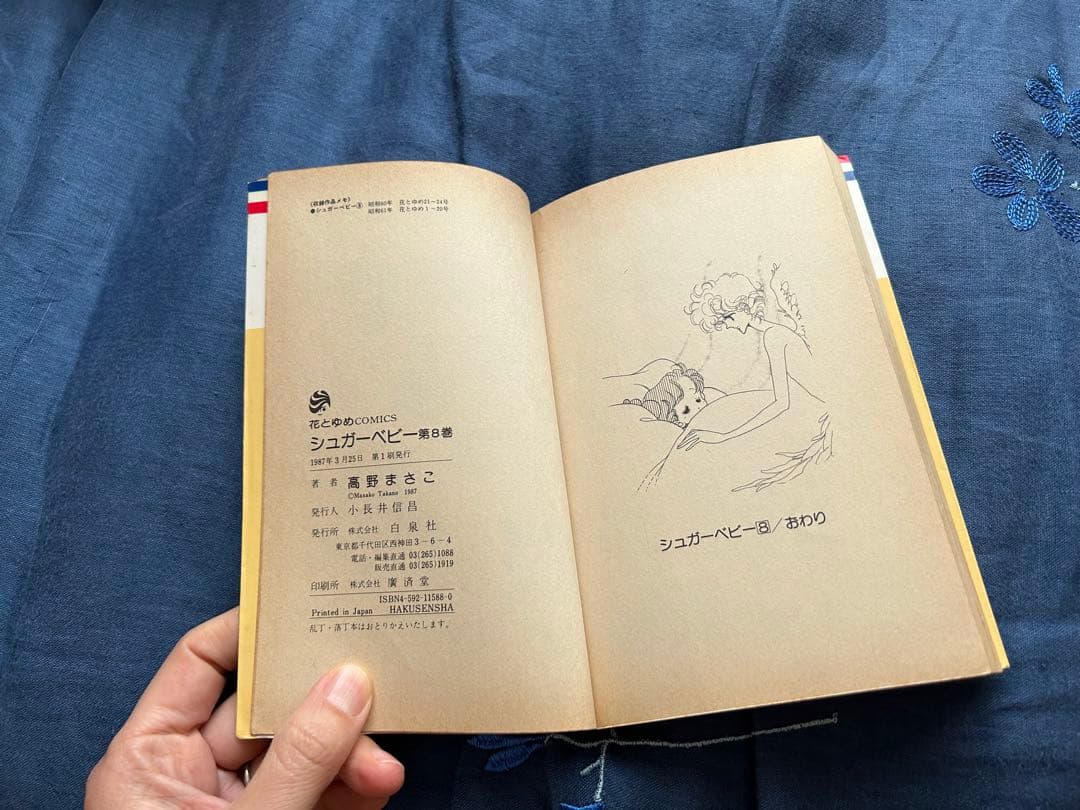 (収録作品メモ)
●シュガーベビー⑧ 昭和60年 花とゆめ21〜24号
昭和61年 花とゆめ1〜20号
花とゆめCOMICS
シュガーベビー第8巻
1987年3月25日 第1刷発行
著者 高野まさこ
©Masako Takano 1987
発行人 小長井信昌
発行所 株式会社 白泉社
東京都千代田区西神田3-6-4
電話・編集直通 03(265)1088
販売直通 03(265)1919
印刷所 株式会社 廣済堂
ISBN4-592-11588-0
Printed in Japan HAKUSENSHA
乱丁・落丁本はおとりかえいたします。
シュガーベビー8/おわり